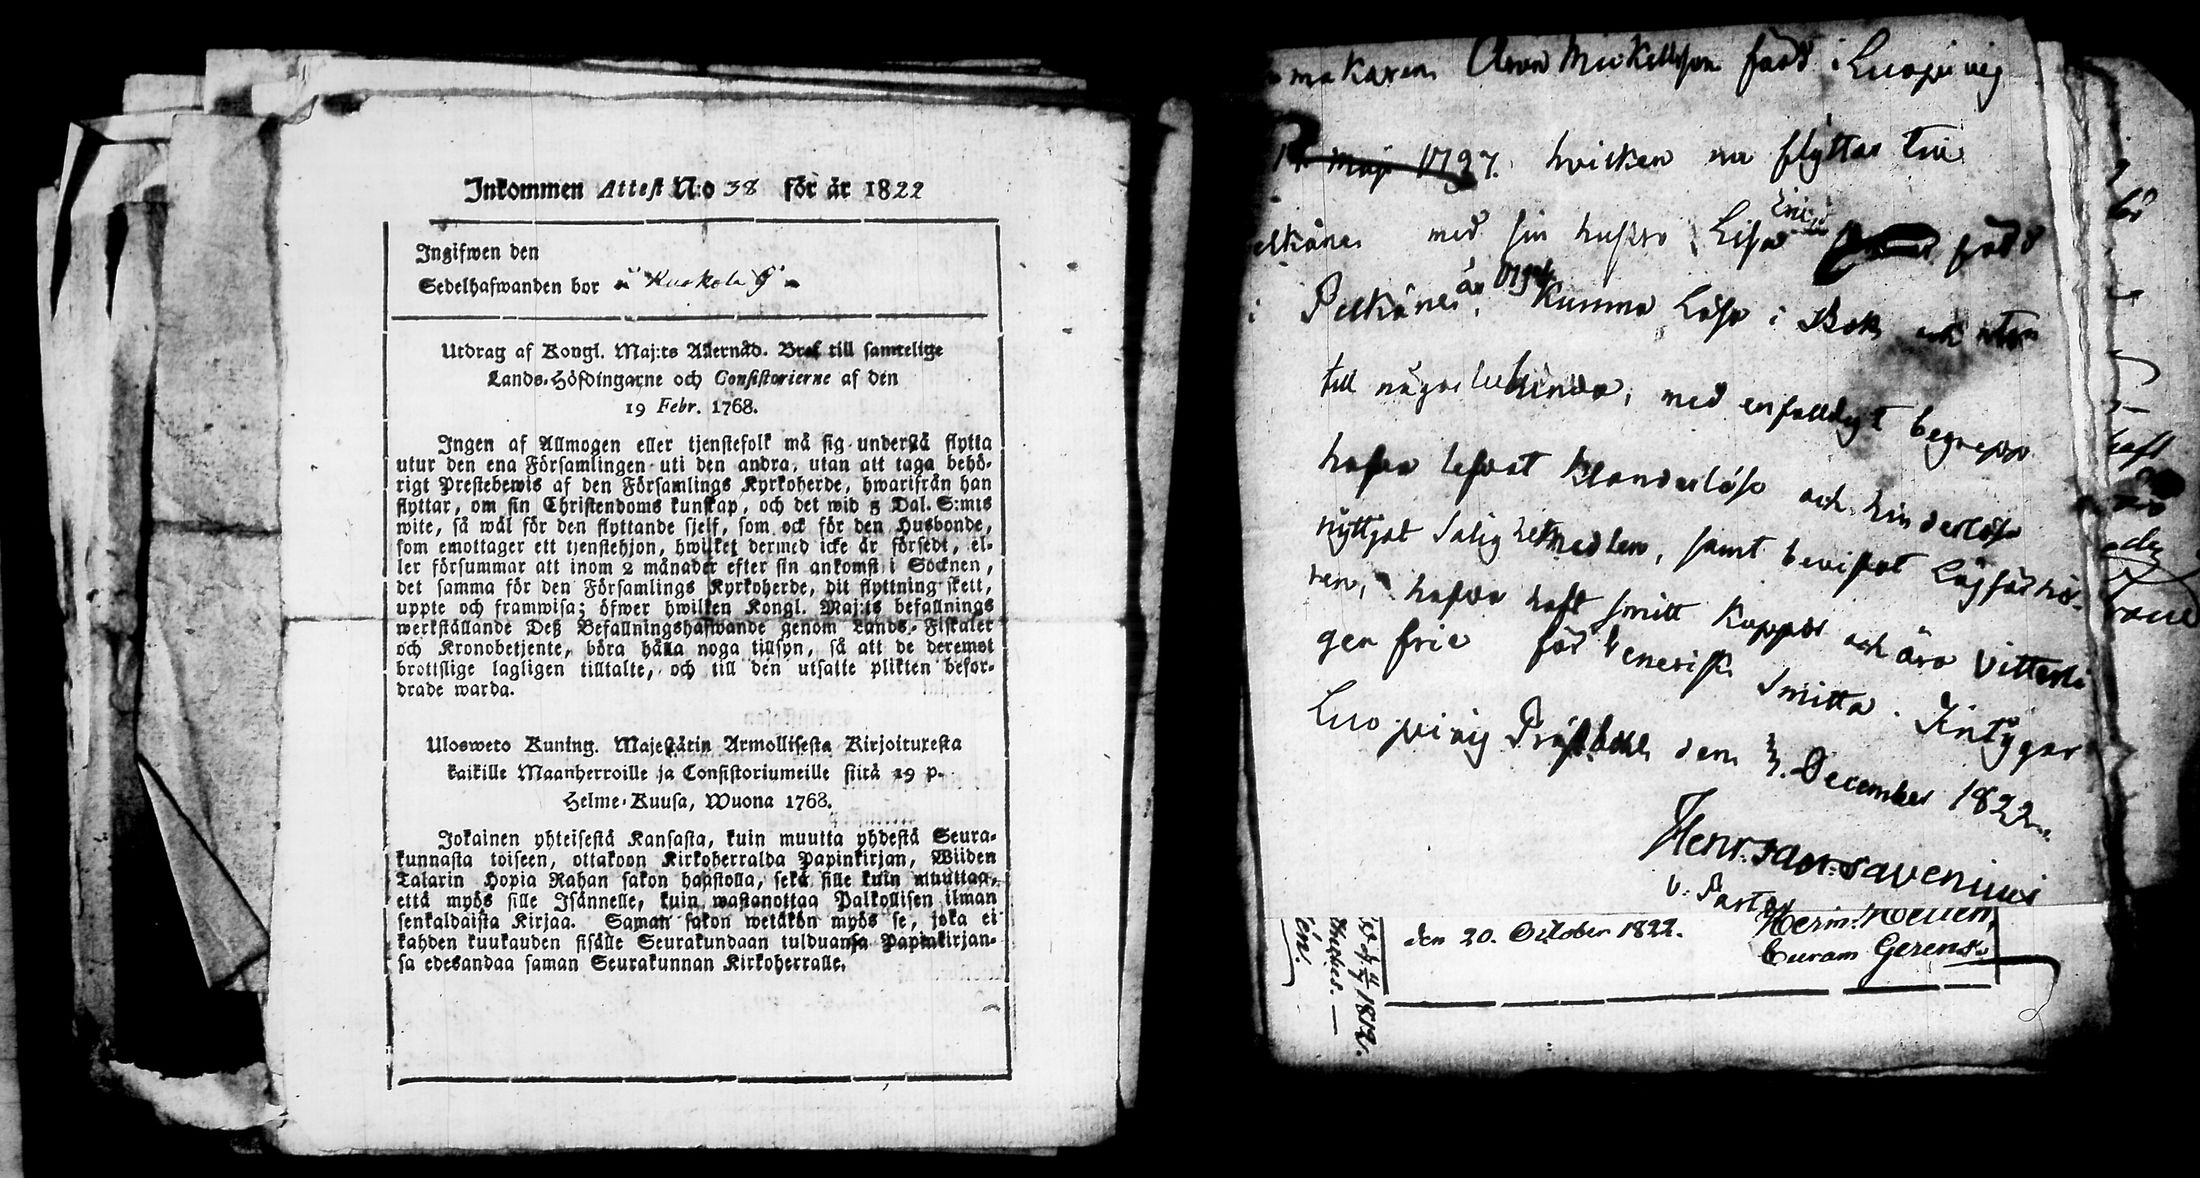 Inkommen Attest N:o 38 för år 1822
Ingifwen den
Sedelhafwanden bor
Utdrag af Kongl. Maj:ts Allernåd. Bref till samtelige
Lands-Höfdingarne och Consistorierne af den
19 Febr. 1768.
Ingen af Allmogen eller tjenstefolk må sig understå flytta
utur den ena Församlingen uti den andra, utan att taga behö-
rigt Prestebewis af den Församlings Kyrkoherde, hwarifrån han
flyttar, om sin Christendoms kunskap, och det wid 5 Dal. S:mts
wite, så wäl för den flyttande sjelf, som ock för den Husbonde,
som emottager ett tjenstehjon, hwilket dermed icke är försedt, el-
ler försummar att inom 2 månader efter sin ankomst i Socknen,
det samma för den Församlings Kyrkoherde, dit flyttning skett,
uppte och framwisa; öfwer hwilken Kongl. Maj:ts befallnings
werkställande Deß Befallningshafwande genom Lands-Fiskaler
och Kronobetjente, böra hålla noga tillsyn, så att de deremot
brottslige lagligen tilltalte, och till den utsatte plikten befor-
drade warda.
Ulosweto Kuning. Majestätin Armollisesta Kirjoituresta
kaikille Maanherroille ja Consistoriumeille siitä 19 p.
Helme-Kuusa, Wuona 1768.
Jokainen yhteisestä Kansasta, kuin muutta yhdestä Seura-
kunnasta toiseen, ottakoon Kirkoherralda Papinkirjan, Wiiden
Talarin Hopia Rahan sakon haastolla, sekä sille kuin muuttaa,
että myös sille Isännelle, kuin wastanottaa Palkollisen ilman
senkaldaista Kirjaa. Saman sakon wetäkön myös se, joka ei
kahden kuukauden sisälle Seurakundaan tulduansa Papinkirjan-
sa edesandaa saman Seurakunnan Kirkoherralle.
makaren Aron Mickelsson född i Luopivig
maji 1797. hvilken nu flyttar till
elkäne med sin hustro Lisa född
i Pelkäne år Kunna läsa i Bok och utan
till några med enfalldigt begrepp
hafva lefvat klanderlöse och hinderlöse
nyttjat Salighetsmedlen, samt bevistat Läsförhö-
ren, hafva haft smitt Koppor och äro Vitterli
gen frie för venerisk Smitta. Intygar
Luopivig Prästbohl den December 1822.
Henr. Joh. Savenius
V. Pastor
den 20. October 1822.
Herm. Mellen,
Curam Gerens.